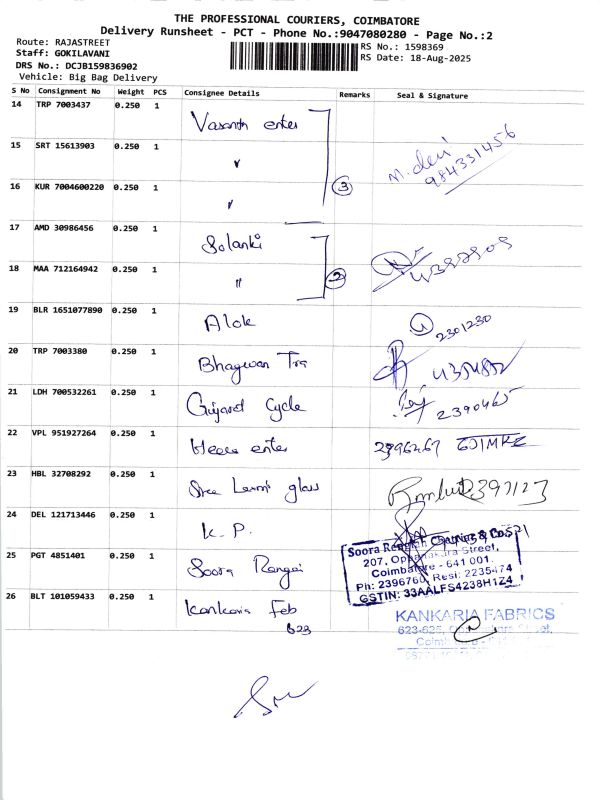 THE PROFESSIONAL COURIERS, COIMBATORE
Delivery Runsheet - PCT - Phone No.:9047080280 - Page No.:2
Route: RAJASTREET
RS No.: 1598369
Staff: GOKILAVANI
RS Date: 18-Aug-2025
DRS No.: DCJB159836902
Vehicle: Big Bag Delivery
S No Consignment No Weight PCS Consignee Details Remarks Seal & Signature
14 TRP 7003437 0.250 1 Vasanth enter
15 SRT 15613903 0.250 1 "
M. devi
984331456
16 KUR 7004600220 0.250 1 " 3
17 AMD 30986456 0.250 1 Solanki
18 MAA 712164942 0.250 1 " 2
19 BLR 1651077890 0.250 1 Alok 2301230
20 TRP 7003380 0.250 1 Bhagwan Tra
21 LDH 700532261 0.250 1 Gujarat Cycle 2390465
22 VPL 951927264 0.250 1 Heera enter 2396467
23 HBL 32708292 0.250 1 Sree Laxmi glass 2397127
24 DEL 121713446 0.250 1 K. P.
Soora Rengiah Chetting & Co.
207, Oppanakara Street,
Coimbatore - 641 001.
25 PGT 4851401 0.250 1 Soora Rengai
Ph: 2396760, Resi: 2235474
GSTIN: 33AALFS4238H1Z4
26 BLT 101059433 0.250 1 Kankaria Feb
623
KANKARIA FABRICS
623-625, Street,